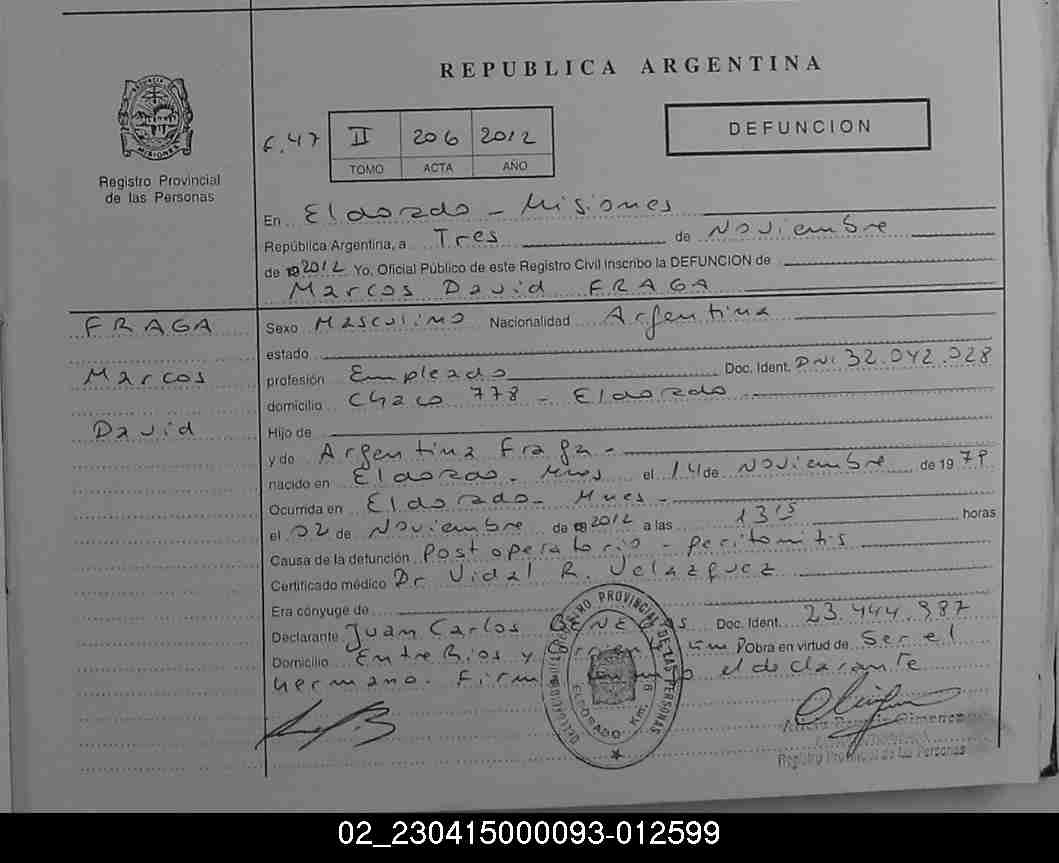 REPUBLICA ARGENTINA
PROVINCIA DE MISIONES
Registro Provincial
de las Personas
F.47 II 206 2012
TOMO ACTA AÑO
DEFUNCION
En Eldorado - Misiones
República Argentina, a Tres de Noviembre
de 2012 Yo, Oficial Público de este Registro Civil inscribo la DEFUNCION de
Marcos David FRAGA
FRAGA
Marcos
David
Sexo Masculino Nacionalidad Argentina
estado
profesión Empleado Doc. Ident. DNI 32.042.028
domicilio Chaco 778 - Eldorado
Hijo de
y de Argentina Fraga -
nacido en Eldorado - Mnes el 14 de Noviembre de 19
Ocurrida en Eldorado - Mnes -
el 02 de Noviembre de 2012 a las 13 15 horas
Causa de la defunción Post operatorio - peritonitis
Certificado médico Dr Vidal R. Velazquez
Era cónyuge de
Declarante Juan Carlos Doc. Ident. 23.444.987
Domicilio Entre Rios y obra en virtud de Ser el
hermano. el declarante
REGISTRO PROVINCIAL DE LAS PERSONAS
ELDORADO Km.
Gimenez
Registro Provincial de las Personas
02_230415000093-012599